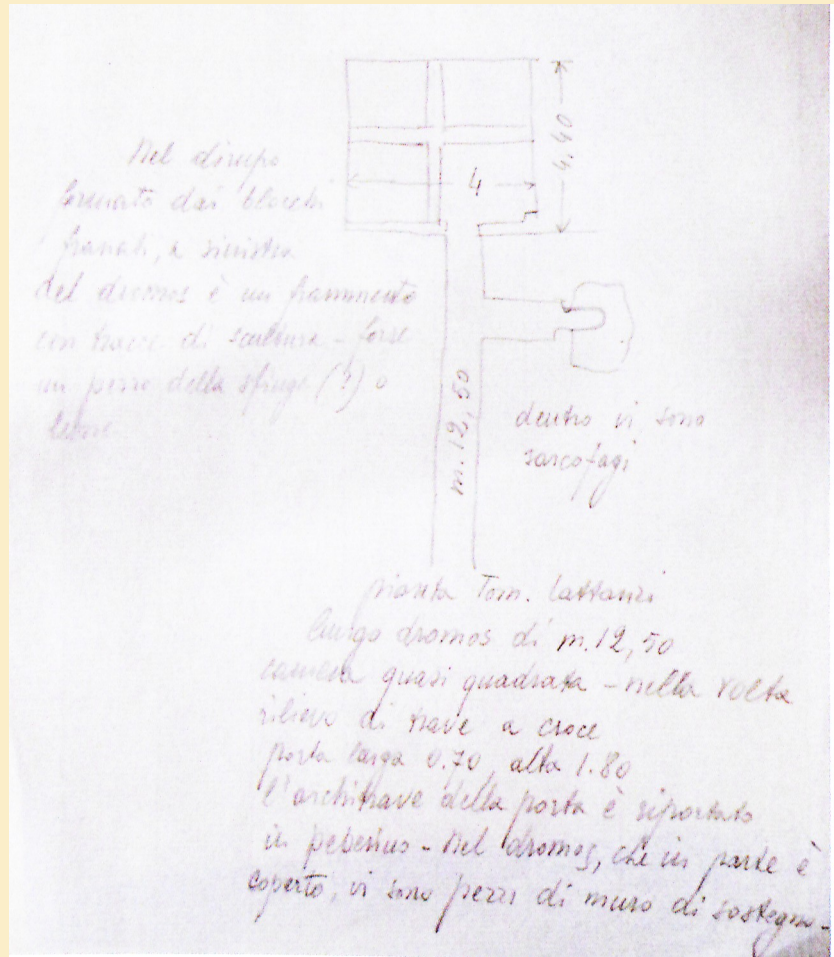 4,40
4
Nel dirupo
formato dai blocchi
franati, a sinistra
del dromos è un frammento
con tracce di scultura - forse
un pezzo della sfinge (?) o
leone
m. 12,50
dentro vi sono
sarcofagi
pianta Tom. Lattanzi
lungo dromos di m. 12,50
camera quasi quadrata - nella volta
rilievo di trave a croce
porta larga 0.70, alta 1.80
l'architrave della porta è riportato
in peperino - Nel dromos, che in parte è
coperto, vi sono pezzi di muro di sostegno -